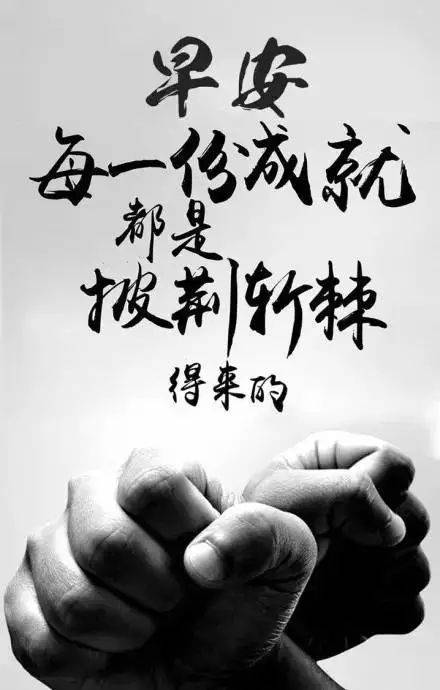 早安
每一份成就
都是
披荆斩棘
得来的